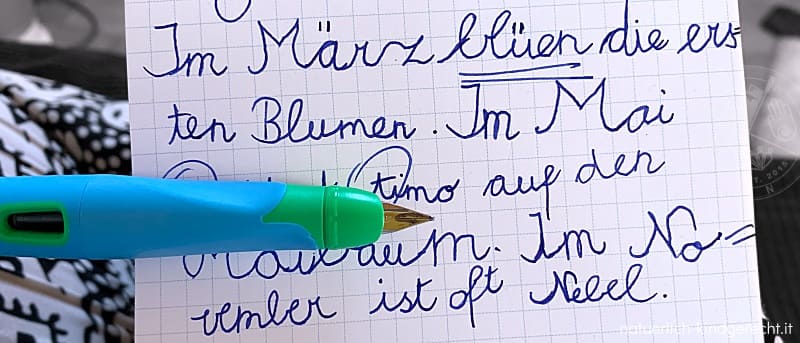 Im März blüen die ers
ten Blumen. Im Mai
timo auf den
Maibaum. Im No=
vember ist oft Nebel.
natuerlich-kindgerecht.it